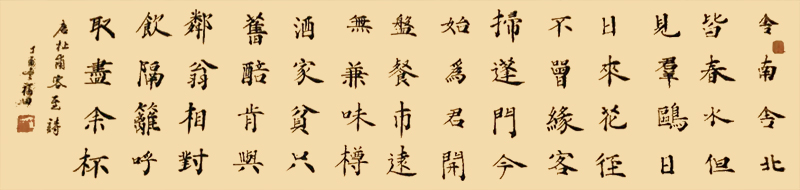 舍南舍北
皆春水但
見羣鷗日
日來花徑
不曾緣客
掃蓬門今
始爲君開
盤餐市遠
無兼味樽
酒家貧只
舊醅肯與
鄰翁相對
飲隔籬呼
取盡余杯
唐杜甫客至詩